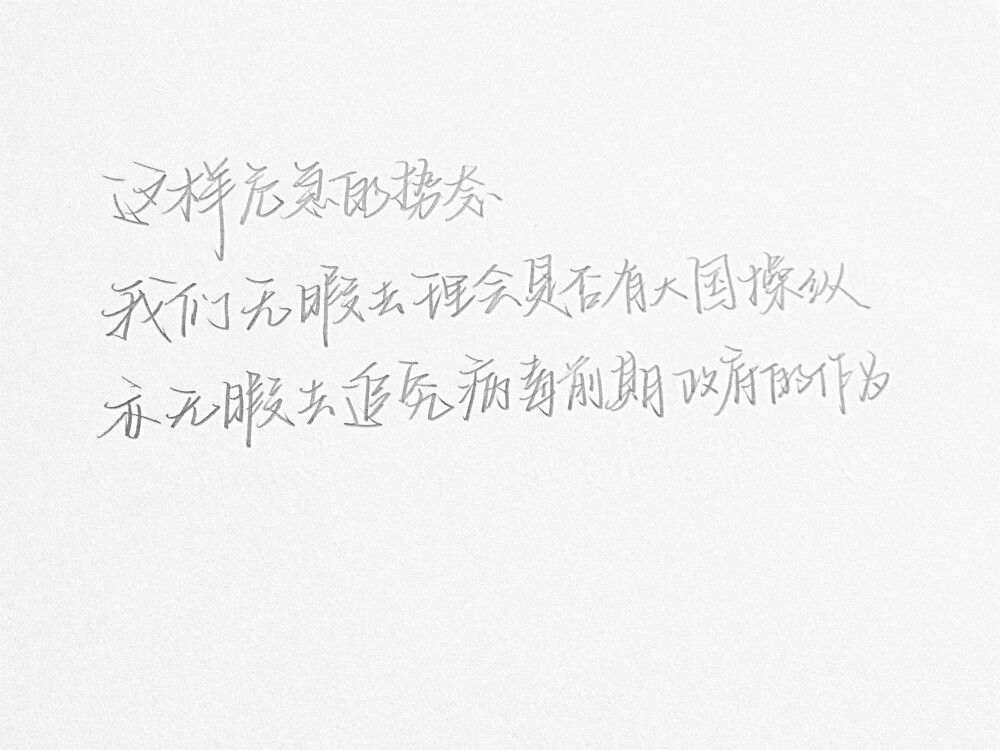 这样危急的势态
我们无暇去理会是否有大国操纵
亦无暇去追究病毒前期政府的作为